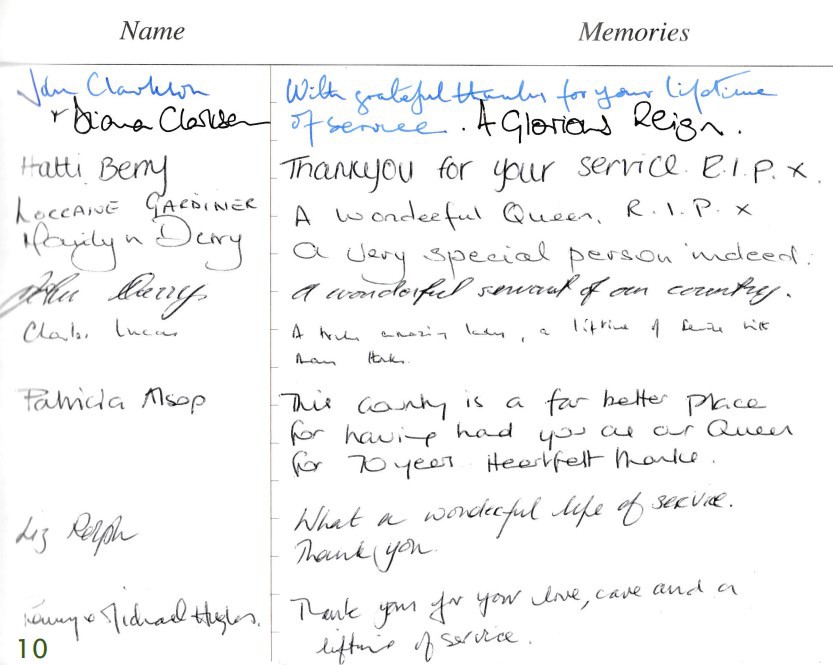 Name Memories
John Clarkson With grateful thanks for your lifetime
+ Diana Clarkson of service. A Glorious Reign.
Hatti Berry Thankyou for your service R.I.P. x.
LORRAINE GARDINER A wonderful Queen. R.I.P x
Marilyn Derry a very special person indeed.
John Derry a wonderful servant of our country.
Charles Lucas A truly amazing lady, a lifetime of service with
Many thanks.
Patricia Alsop This country is a far better place
for having had you as our Queen
for 70 years Heartfelt thanks.
Liz Relph What a wonderful life of service.
Thank you.
Michael Hughes. Thank you for your love, care and a
lifetime of service.
10